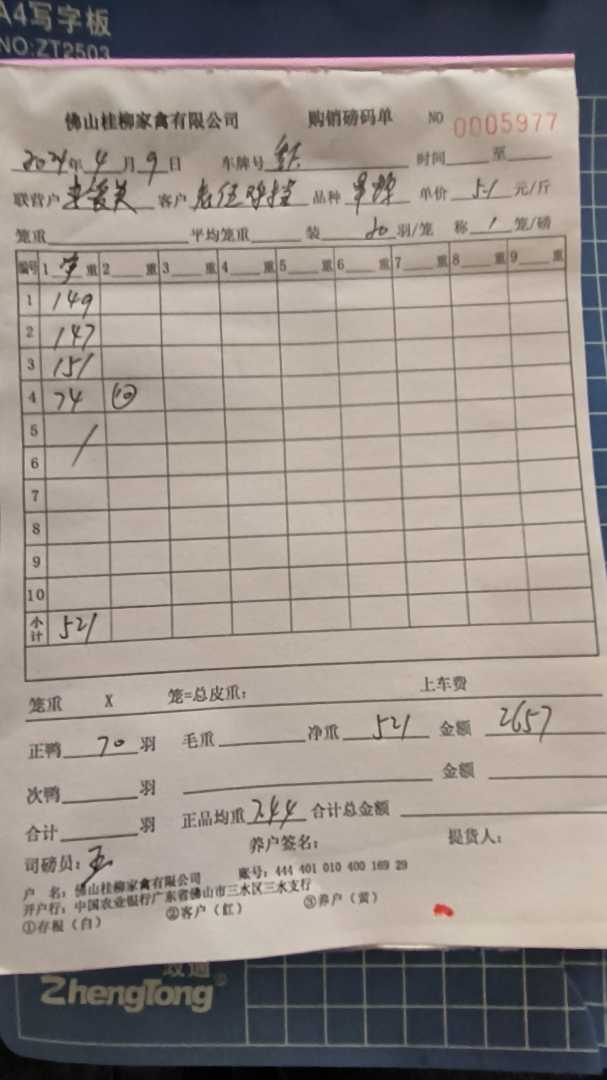 A4写字板
NO:ZT2503
佛山桂柳家禽有限公司 购销磅码单 NO 0005977
2024年4月9日 车牌号 时间 至
联营户 客户 品种 单价 5.1 元/斤
笼重 平均笼重 装 20 羽/笼 称 1 笼/磅
编号 1 重 2 重 3 重 4 重 5 重 6 重 7 重 8 重 9 重
1 149
2 147
3 151
4 74 ⑩
5
6
7
8
9
10
小计 521
笼重 X 笼=总皮重: 上车费
正鸭 70 羽 毛重 净重 521 金额 2657
次鸭 羽 金额
合计 羽 正品均重 7.44 合计总金额
司磅员: 养户签名: 提货人:
户 名: 佛山桂柳家禽有限公司 账号: 444 401 010 400 169 29
开户行: 中国农业银行广东省佛山市三水区三水支行
①存根（白） ②客户（红） ③养户（黄）
ZhengTong®